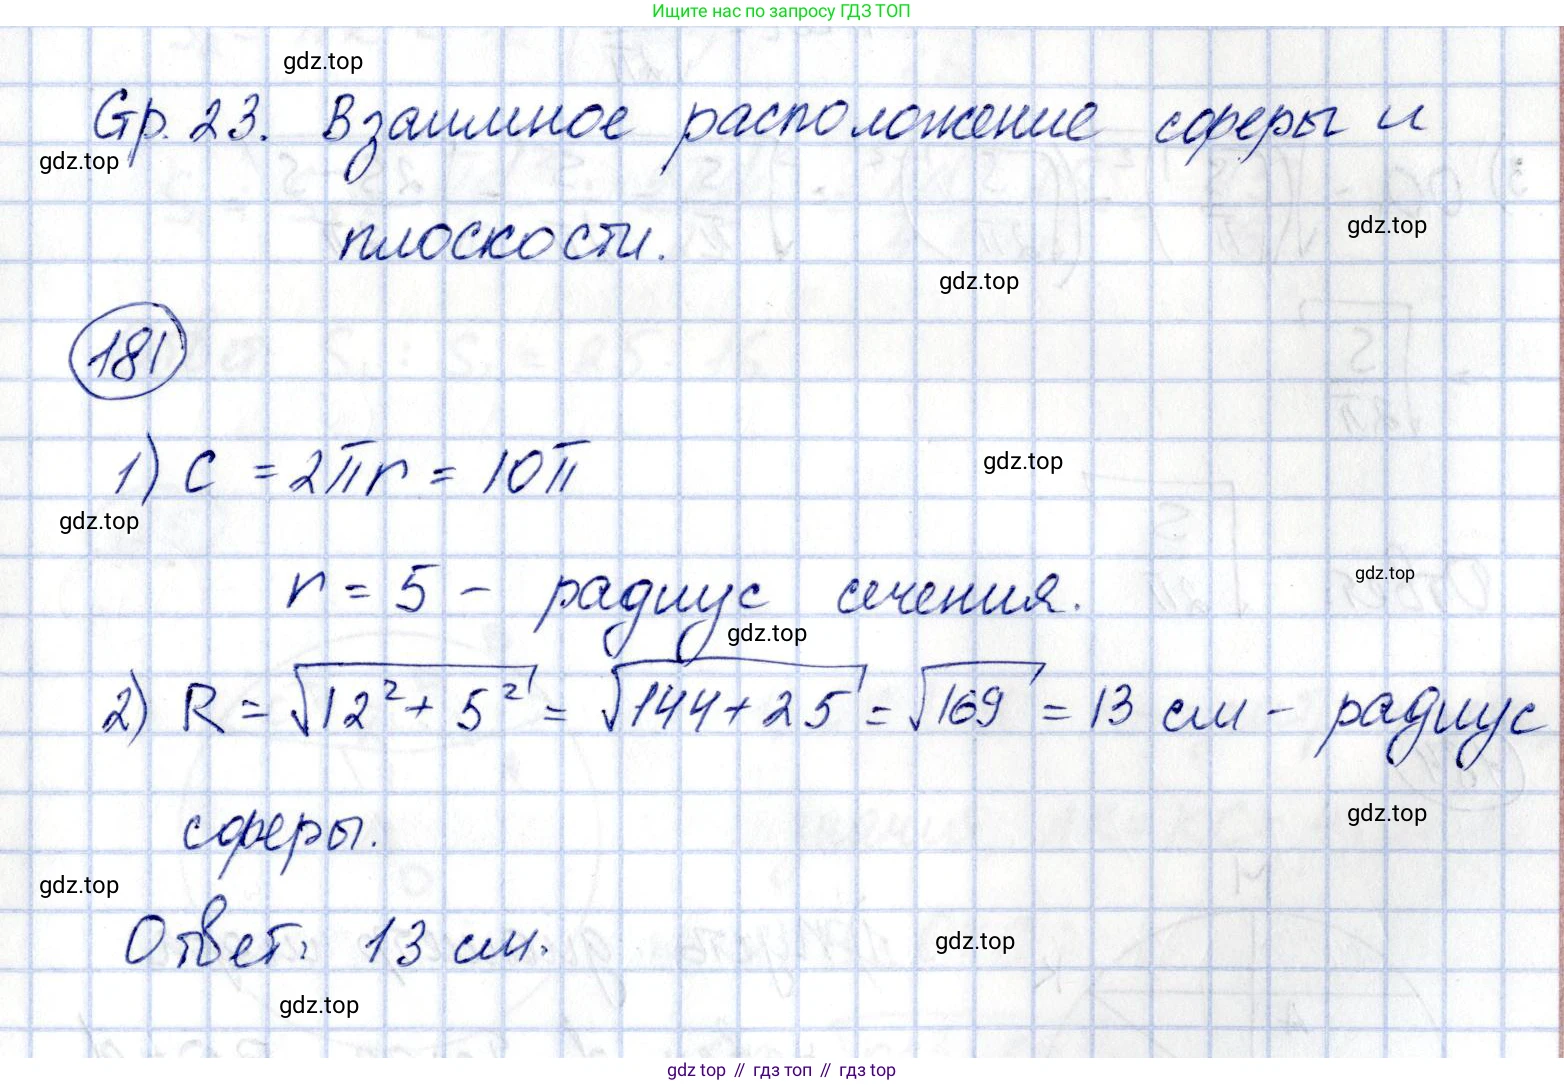 Ищите нас по запросу ГДЗ ТОП
gdz.top
Gр. 23. Взаимное расположение сферы и
gdz.top
плоскости.
gdz.top
gdz.top
181
1) C = 2πr = 10π
gdz.top
gdz.top
r = 5 - радиус сечения.
gdz.top
gdz.top
2) R = √12² + 5² = √144 + 25 = √169 = 13 см - радиус
сферы.
gdz.top
gdz.top
Ответ: 13 см.
gdz.top
gdz.top
gdz top // гдз топ // gdz top